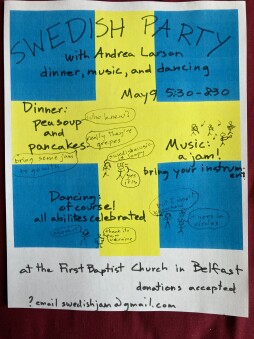 SWEDISH PARTY
with Andrea Larson
dinner, music, and dancing
May 9 5:30-8:30
Dinner:
pea soup
and
pancakes
who knew?
really they're
crepes
bring some jam
Music:
a jam!
bring your instrument
Dancing:
of course!
all abilites celebrated
at the First Baptist Church in Belfast
donations accepted
? email swedishjam@gmail.com